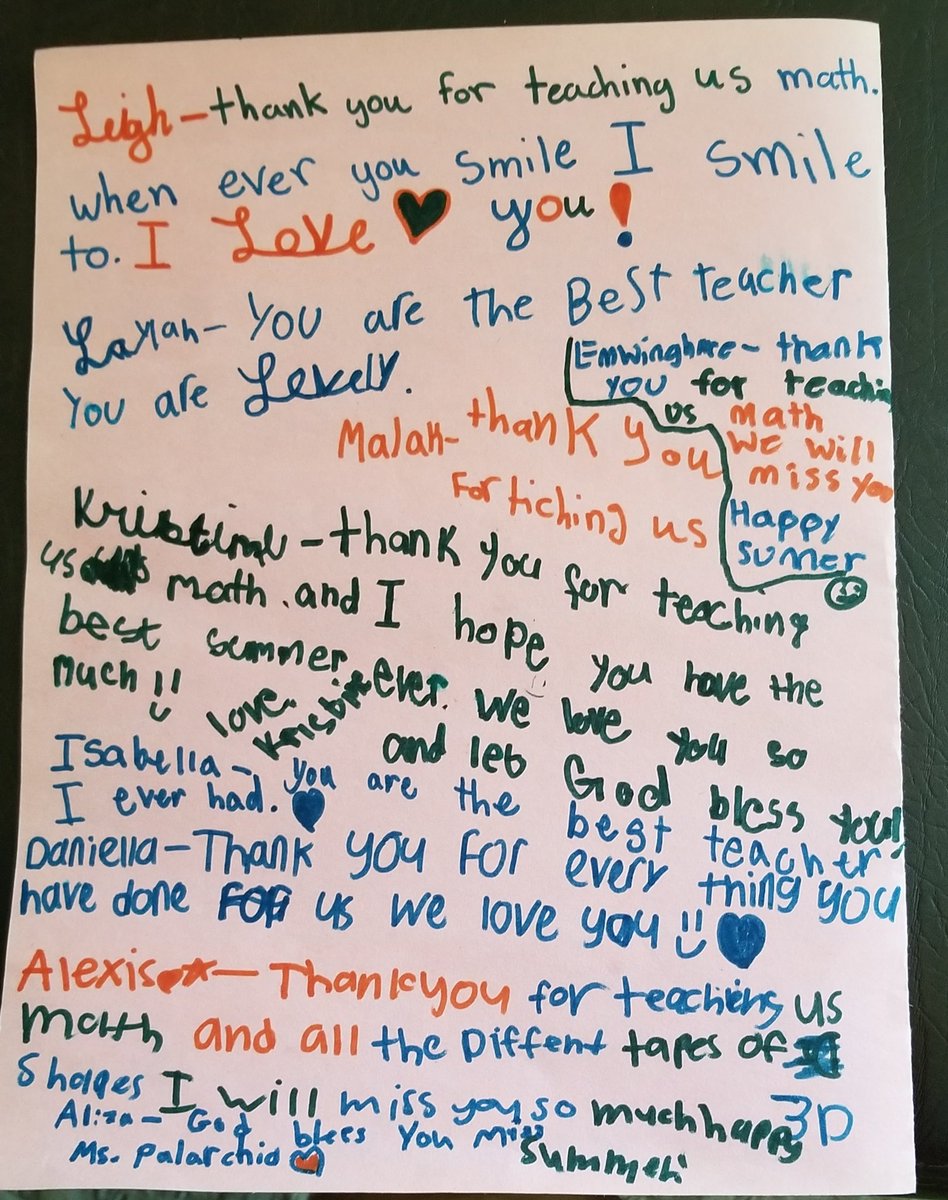 Leigh - thank you for teaching us math.
when ever you smile I smile
to. I Love you!
Layan - You are the Best teacher
You are Lovely.
Emwinghare - thank
you for teachin
us math
we will
miss you
Happy
sumer
Malak - thank you
For tiching us
Kristine - thank you for teaching
us math. and I hope you have the
best summer ever. We love you so
much!! and let God bless you!
love.
Kristine
Isabella - you are the best teacher
I ever had.
Daniella - Thank you For every thing you
have done For us we love you
Alexis - Thank you for teaching us
math and all the Diffent tapes of
3D
Shapes I will miss you so much happy
summer.
Aliza - God bless You miss
Ms. Palarchio